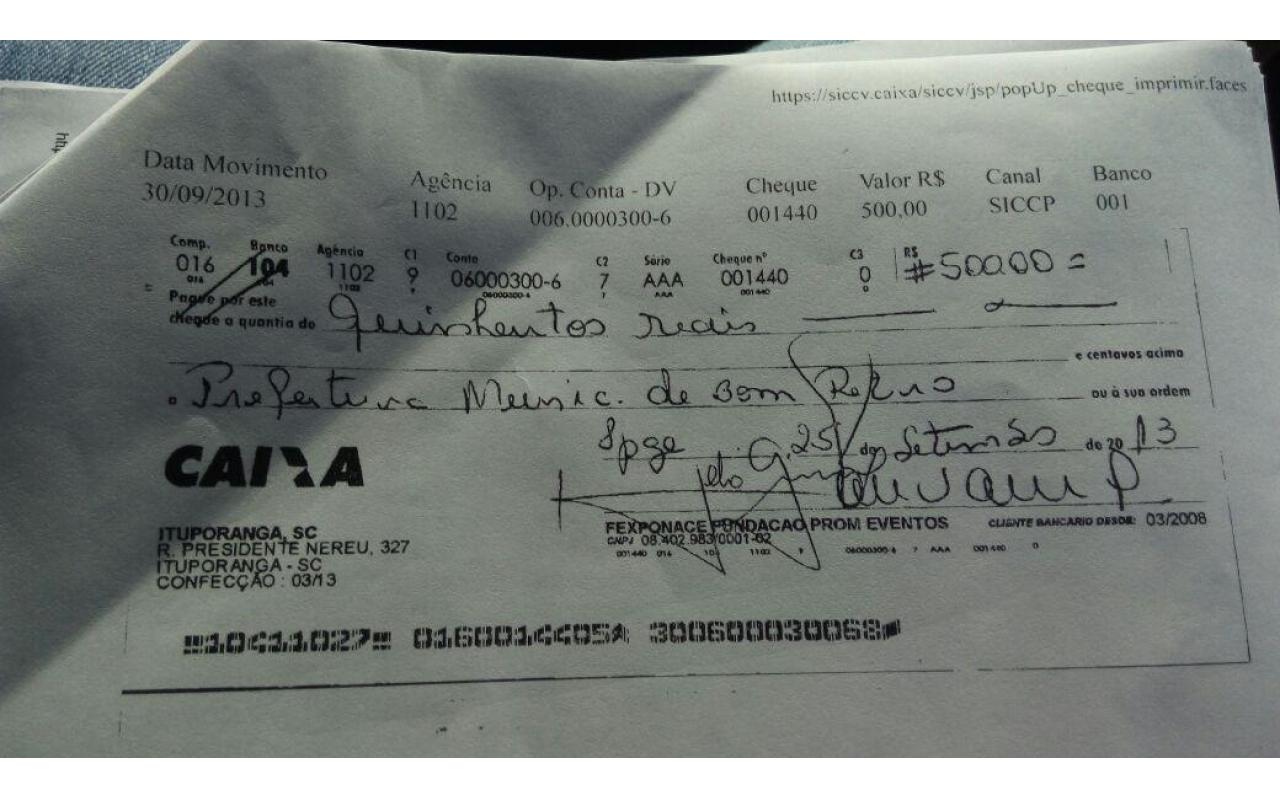 https://siccv.caixa/siccv/jsp/popUp_cheque_imprimir.faces
Data Movimento Agência Op. Conta - DV Cheque Valor R$ Canal Banco
30/09/2013 1102 006.0000300-6 001440 500,00 SICCP 001
Comp. Banco Agência C1 Conta C2 Série Cheque nº C3 R$
016 104 1102 9 06000300-6 7 AAA 001440 0 #500,00=
Pague por este
cheque a quantia de Quinhentos reais
e centavos acima
a Prefeitura Munic. de Bom Retiro ou à sua ordem
25 de Setembro de 20 13
CAIXA
ITUPORANGA, SC
R. PRESIDENTE NEREU, 327
ITUPORANGA - SC
CONFECÇÃO : 03/13
FEXPONACE FUNDACAO PROM EVENTOS CLIENTE BANCARIO DESDE: 03/2008
CNPJ 08.402.983/0001-02
001440 016 104 1102 9 06000300-6 7 AAA 001440 0
10411027 0160014405 300600030068